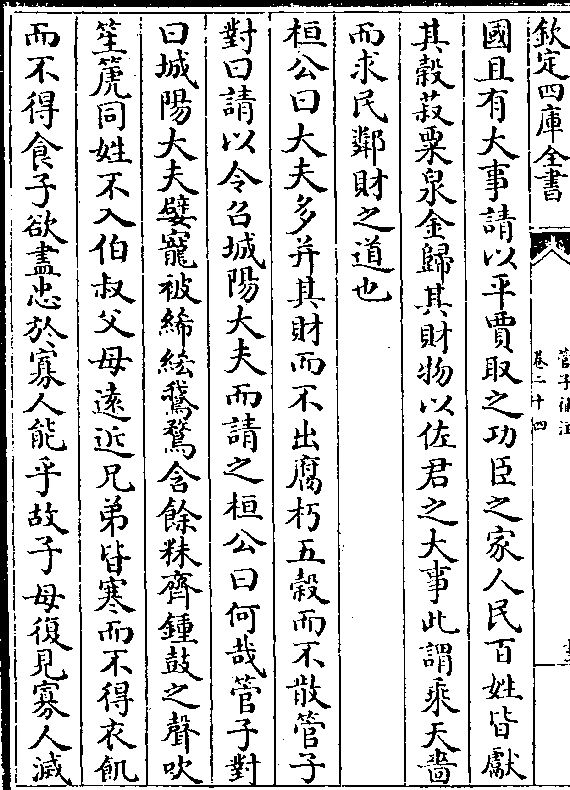 欽定四庫全書
管子補注
卷二十四
國且有大事請以平賈取之功臣之家人民百姓皆獻
其穀菽粟泉金歸其財物以佐君之大事此謂乘天嗇
而求民鄰財之道也
桓公曰大夫多并其財而不出腐朽五穀而不散管子
對曰請以令召城陽大夫而請之桓公曰何哉管子對
曰城陽大夫嬖寵被絺綌鵞鶩含餘粖齊鍾鼓之聲吹
笙篪同姓不入伯叔父母遠近兄弟皆寒而不得衣飢
而不得食子欲盡忠於寡人能乎故子毋復見寡人滅